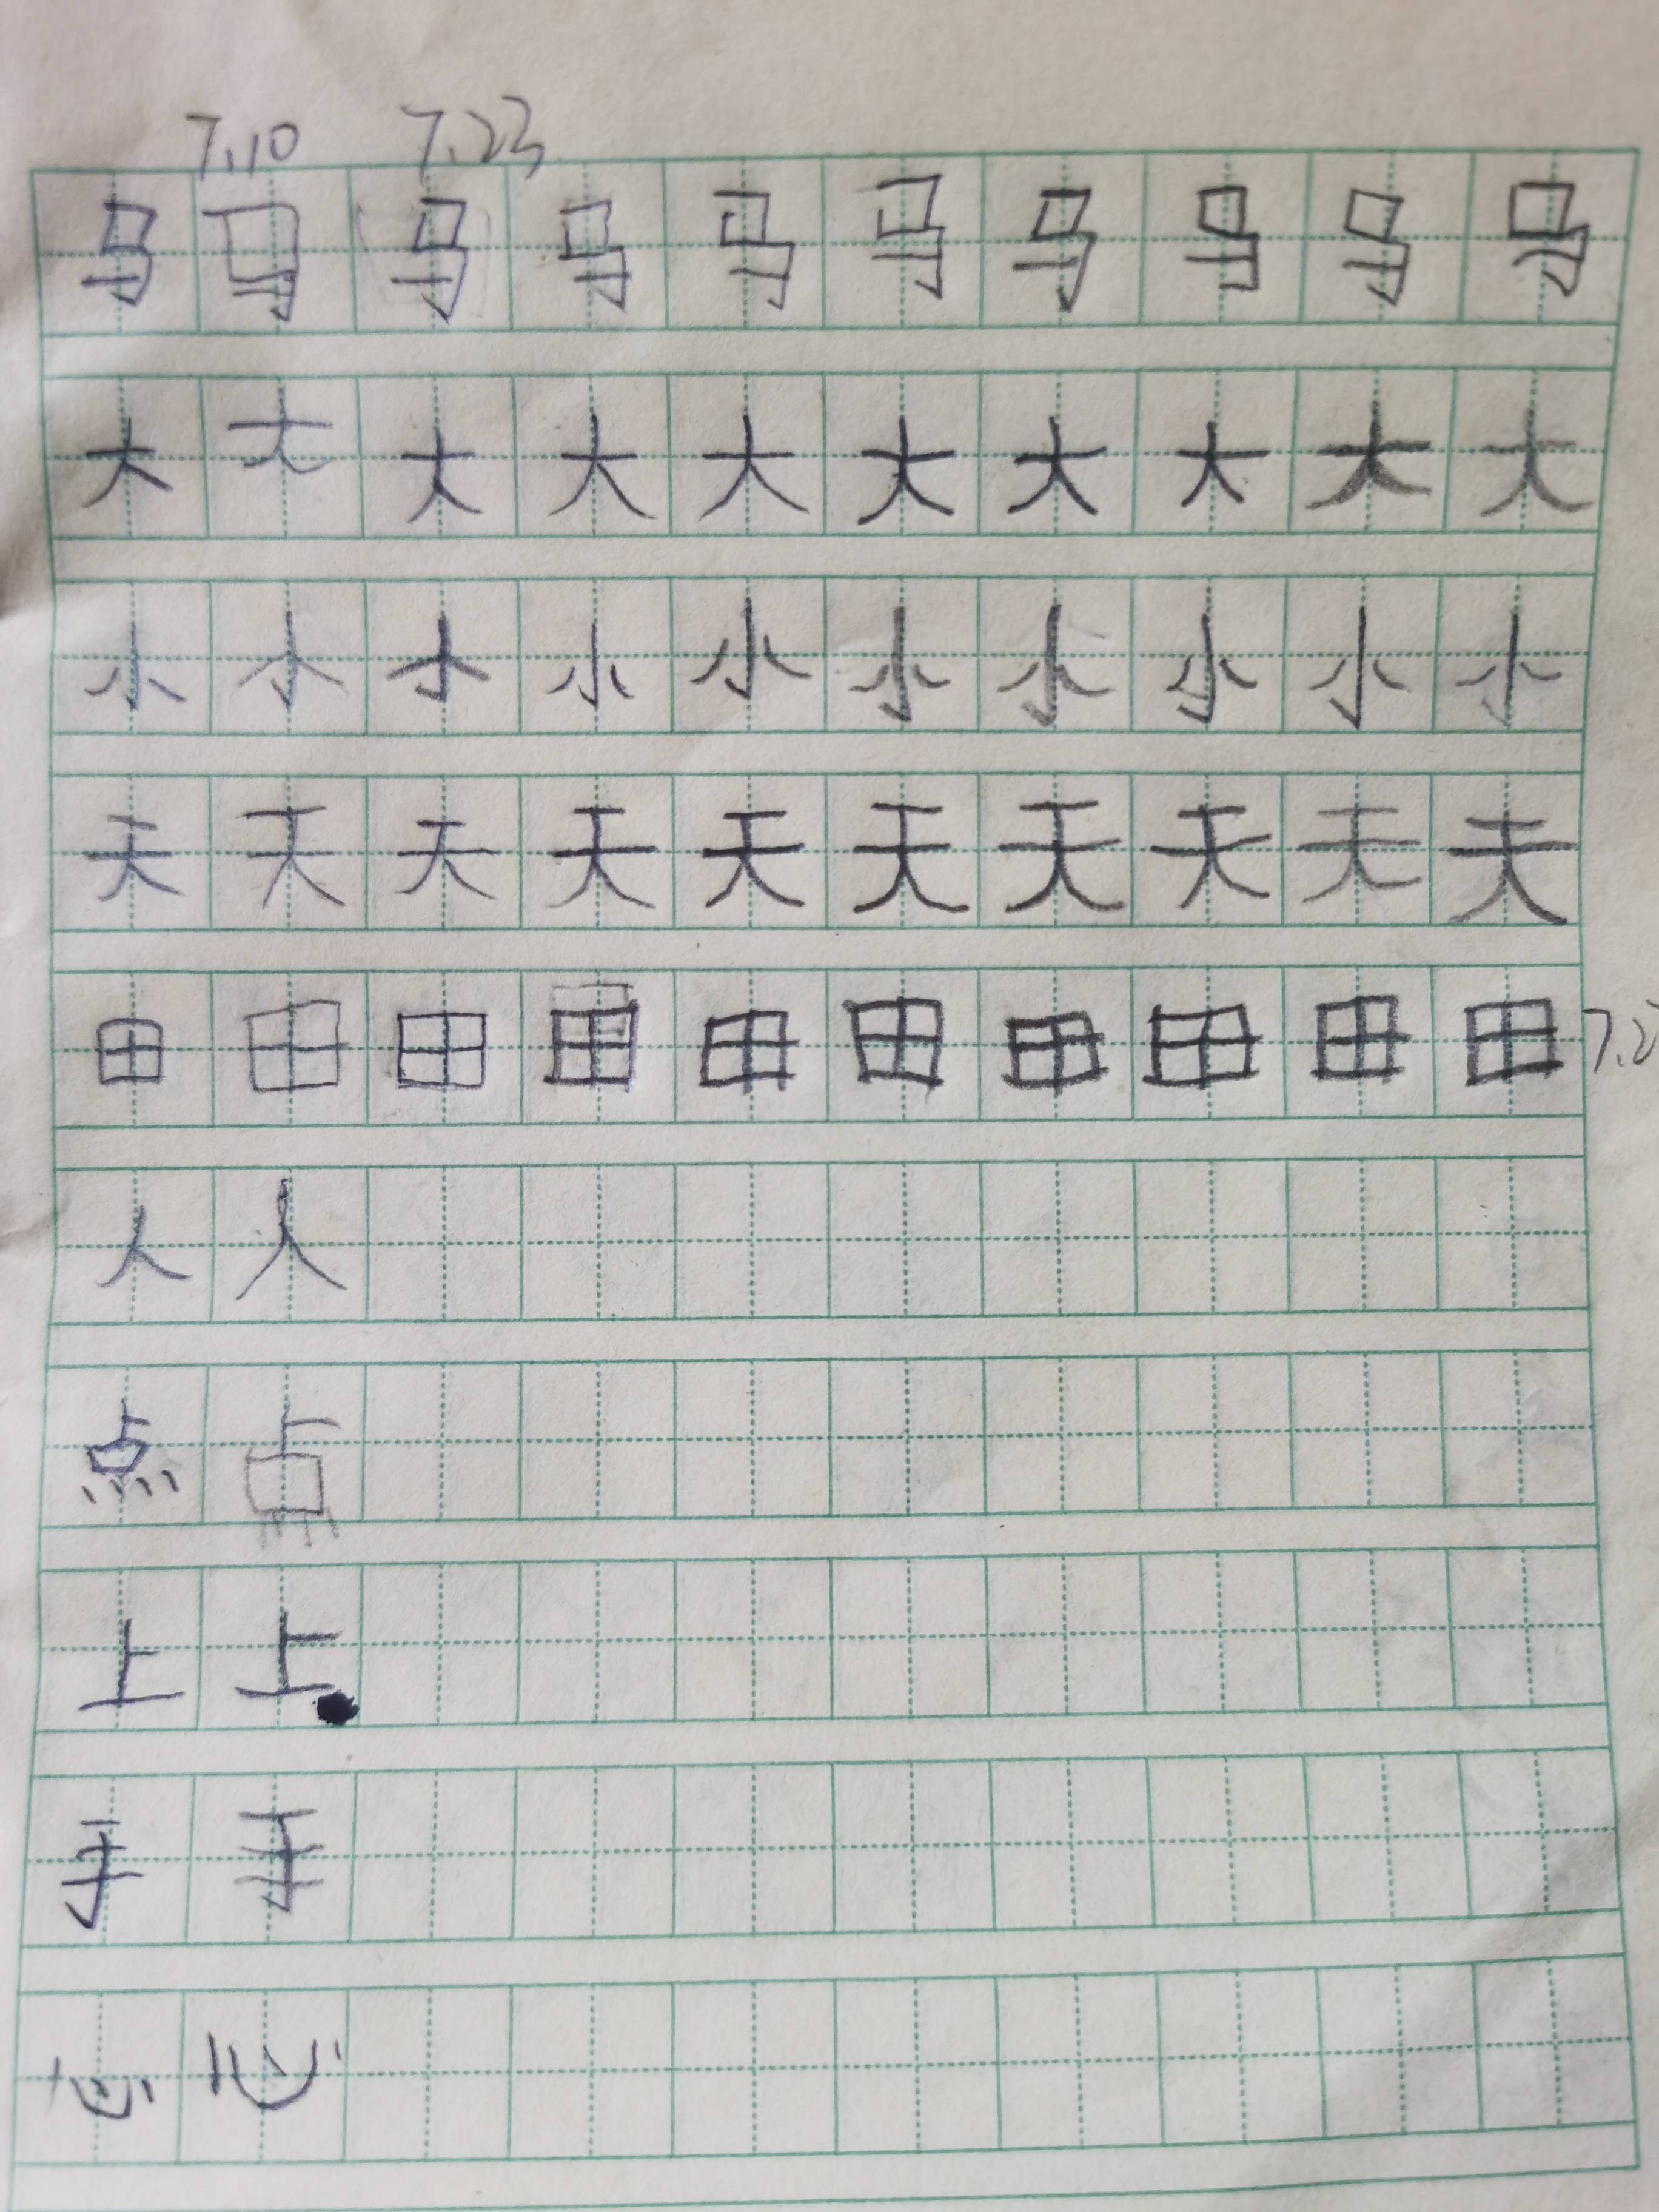 7.10 7.23
马 马 马 马 马 马 马 马 马 马
大 大 大 大 大 大 大 大 大 大
小 小 小 小 小 小 小 小 小 小
天 天 天 天 天 天 天 天 天 天
田 田 田 田 田 田 田 田 田 田
人 人
点 点
上 上
手 手
心 心